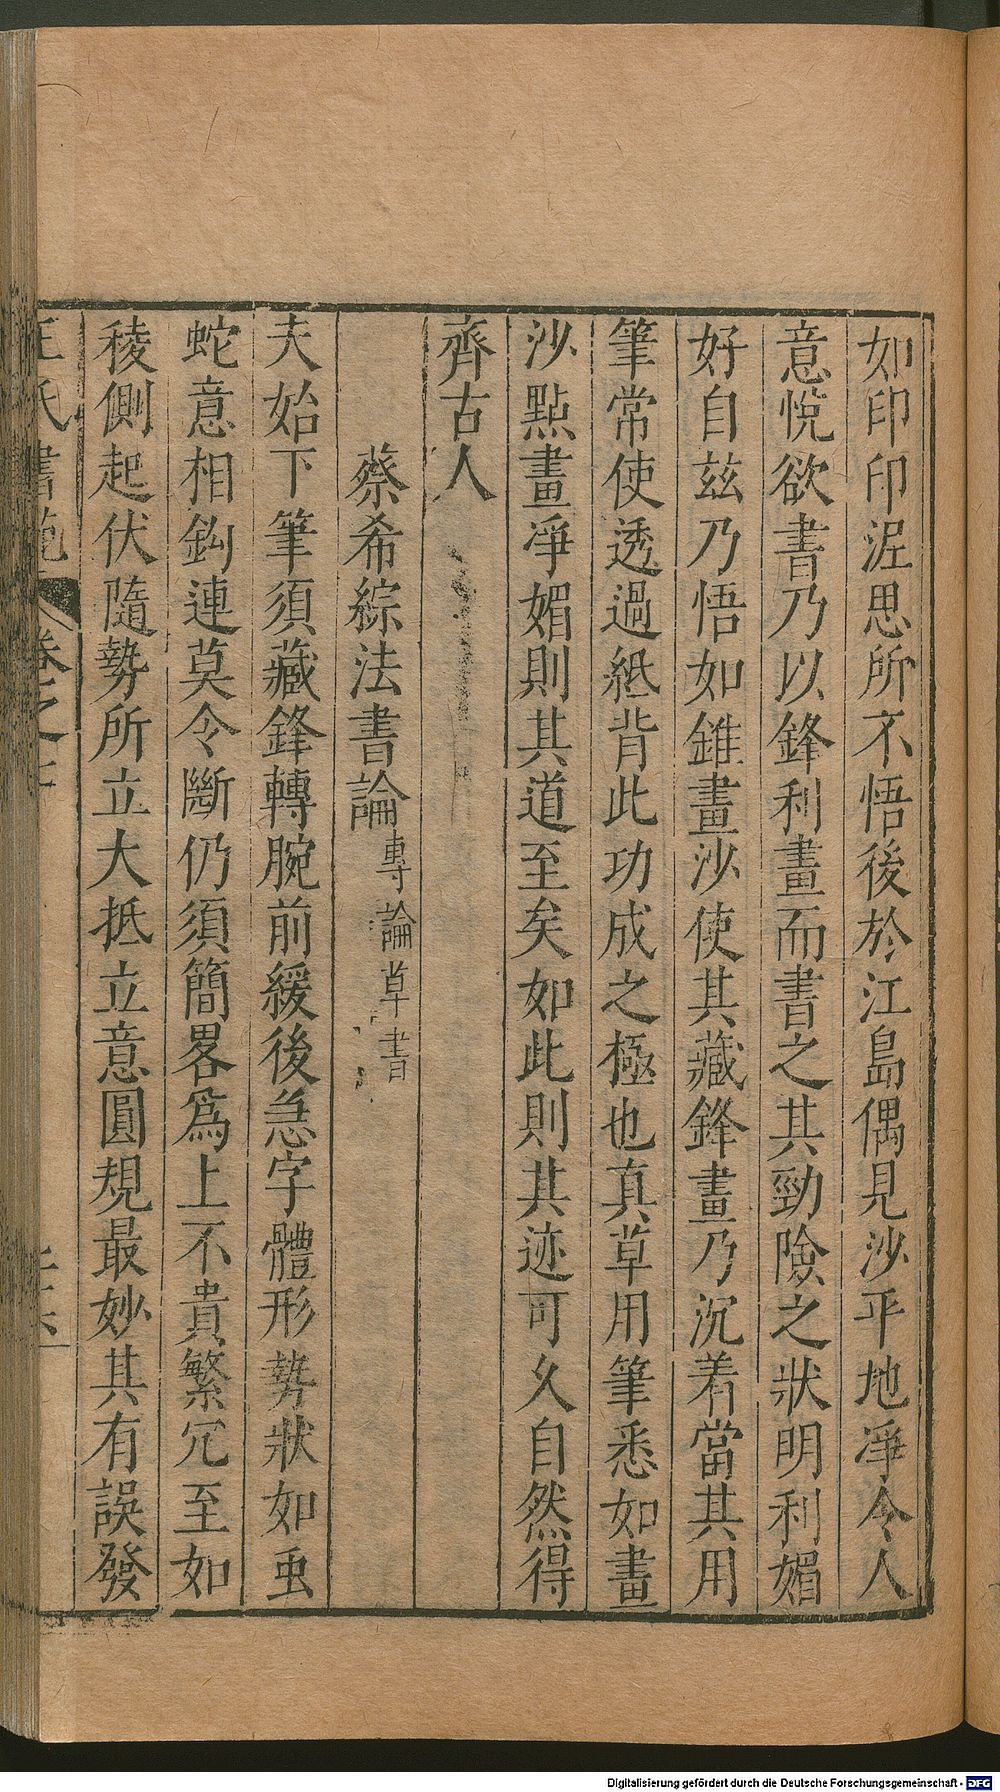 如印印泥思所不悟後於江島偶見沙平地凈令人
意悅欲書乃以鋒利畫而書之其勁險之狀明利媚
好自茲乃悟如錐畫沙使其藏鋒畫乃沉着當其用
筆常使透過紙背此功成之極也真草用筆悉如畫
沙點畫凈媚則其道至矣如此則其迹可久自然得
齊古人
蔡希綜法書論專論草書
夫始下筆須藏鋒轉腕前緩後急字體形勢狀如虫
蛇意相鈎連莫令斷仍須簡畧爲上不貴繁冗至如
稜側起伏隨勢所立大抵立意圓規最妙其有誤發
王氏書苑 卷之
Digitalisierung gefördert durch die Deutsche Forschungsgemeinschaft - DFG